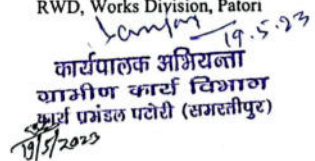 RWD, Works Division, Patori
19.5.23
कार्यपालक अभियन्ता
ग्रामीण कार्य विभाग
कार्य प्रमंडल पटोरी (समस्तीपुर)
19/5/2023